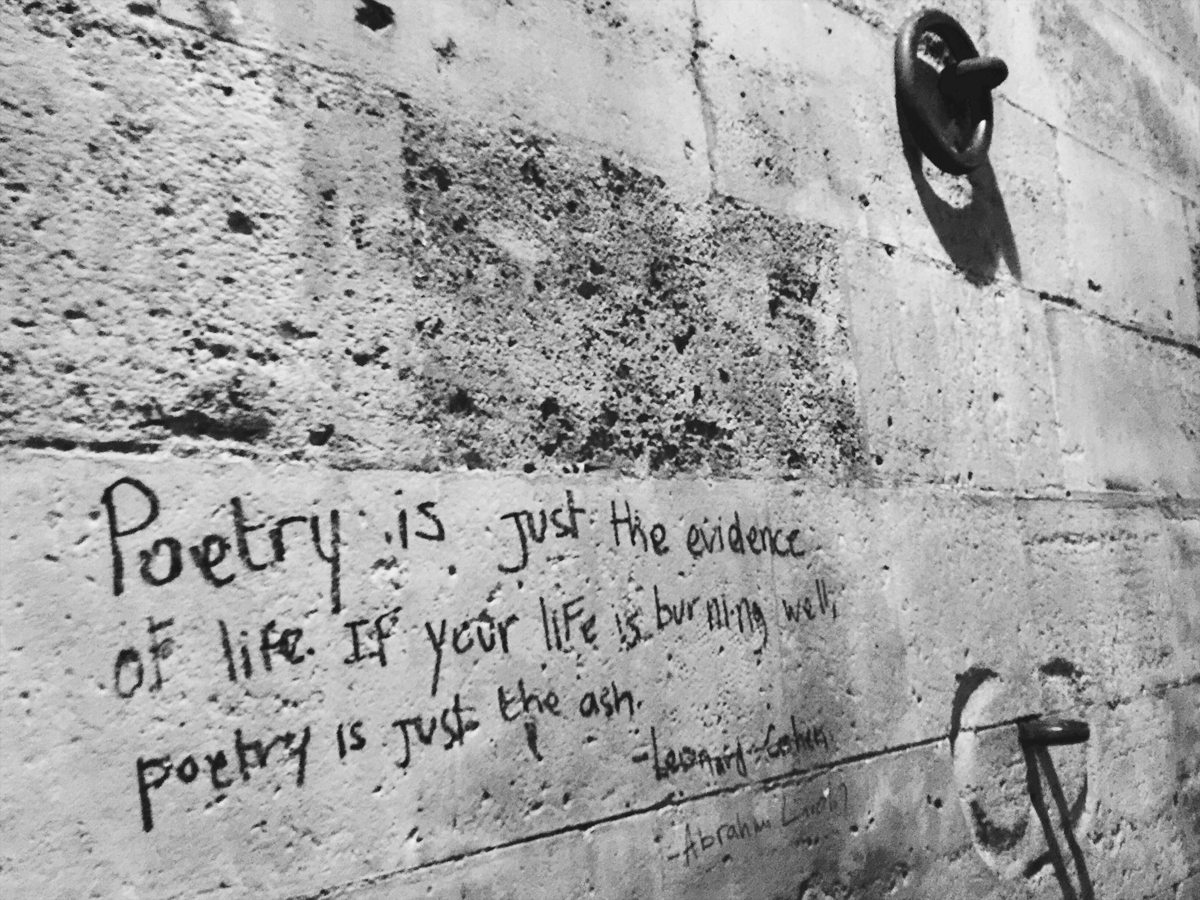 Poetry is just the evidence
of life. If your life is burning well,
poetry is just the ash.
-Leonard Cohen
-Abraham Lincoln